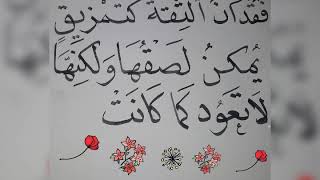 فُقْدَانُ الثِّقَةِ كَتَمْزِيقِ
يُمْكِنُ لَصْقُهَا وَلَكِنَّهَا
لَا تَعُودُ كَمَا كَانَتْ